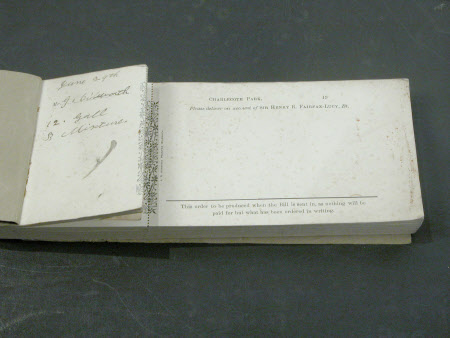 June
12. Gall
8 Mixture
CHARLECOTE PARK, 19
Please deliver on account of SIR HENRY R. FAIRFAX-LUCY, Bt.
This order to be produced when the Bill is sent in, as nothing will be
paid for but what has been ordered in writing.